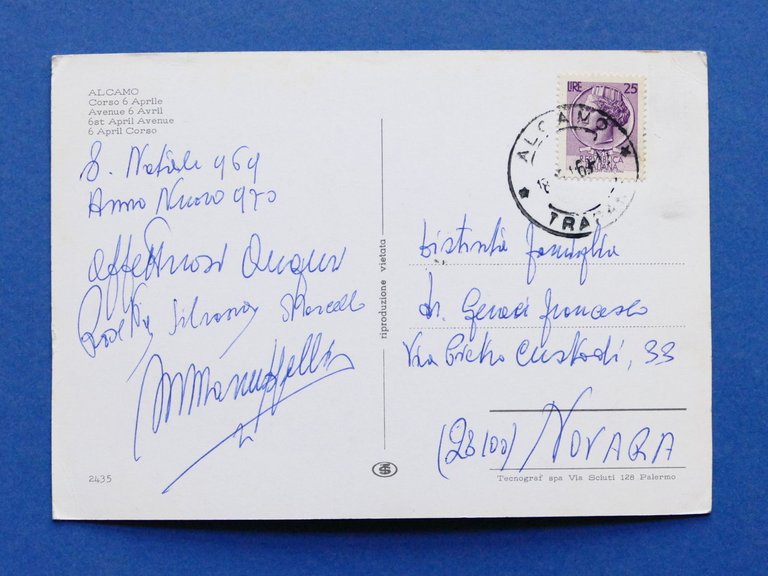 ALCAMO
Corso 6 Aprile
Avenue 6 Avril
6st April Avenue
6 April Corso
S. Natale 969
Anno Nuovo 970
Affettuosi Auguri
Silvana Marcello
riproduzione vietata
LIRE 25
ALCAMO
TRAPANI
Distinta famiglia
dr. Geraci Francesco
Via Pietro Custodi, 33
(28100) NOVARA
2435
Tecnograf spa Via Sciuti 128 Palermo